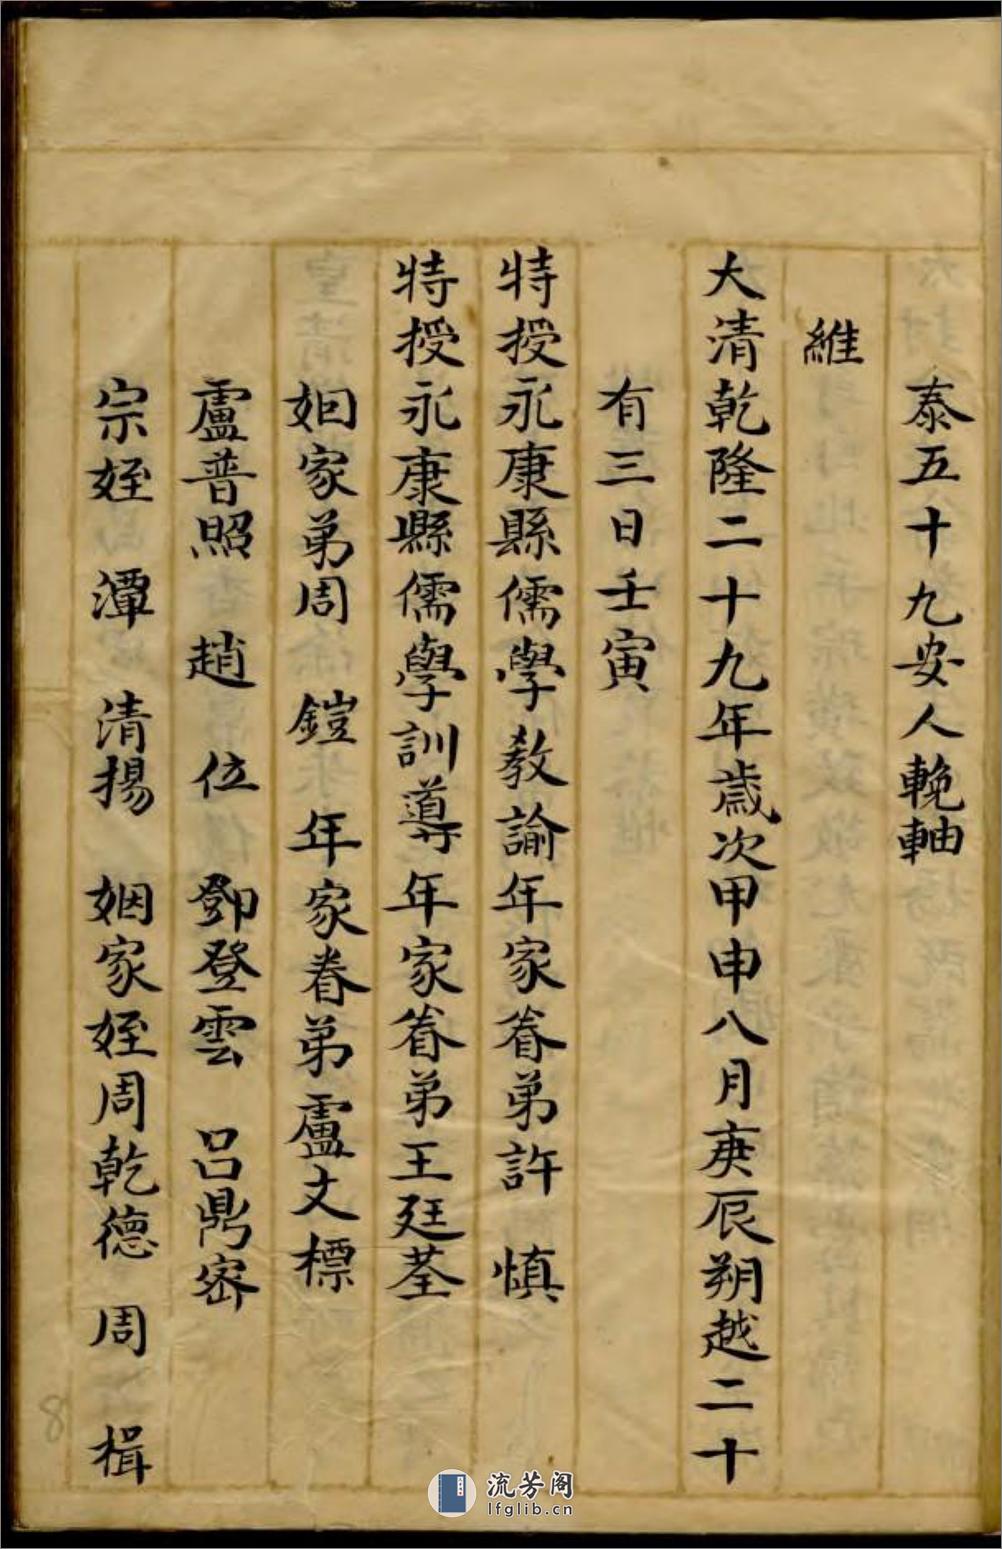 泰五十九安人輓軸
維
大清乾隆二十九年歲次甲申八月庚辰朔越二十
有三日壬寅
特授永康縣儒學教諭年家眷弟許 慎
特授永康縣儒學訓導年家眷弟王廷荃
姻家弟周 鎧 年家眷弟盧文標
盧普照 趙 位 鄧登雲 呂鼎密
宗姪 潭 清揚 姻家姪周乾德 周 楫
8
流芳阁
lfglib.cn